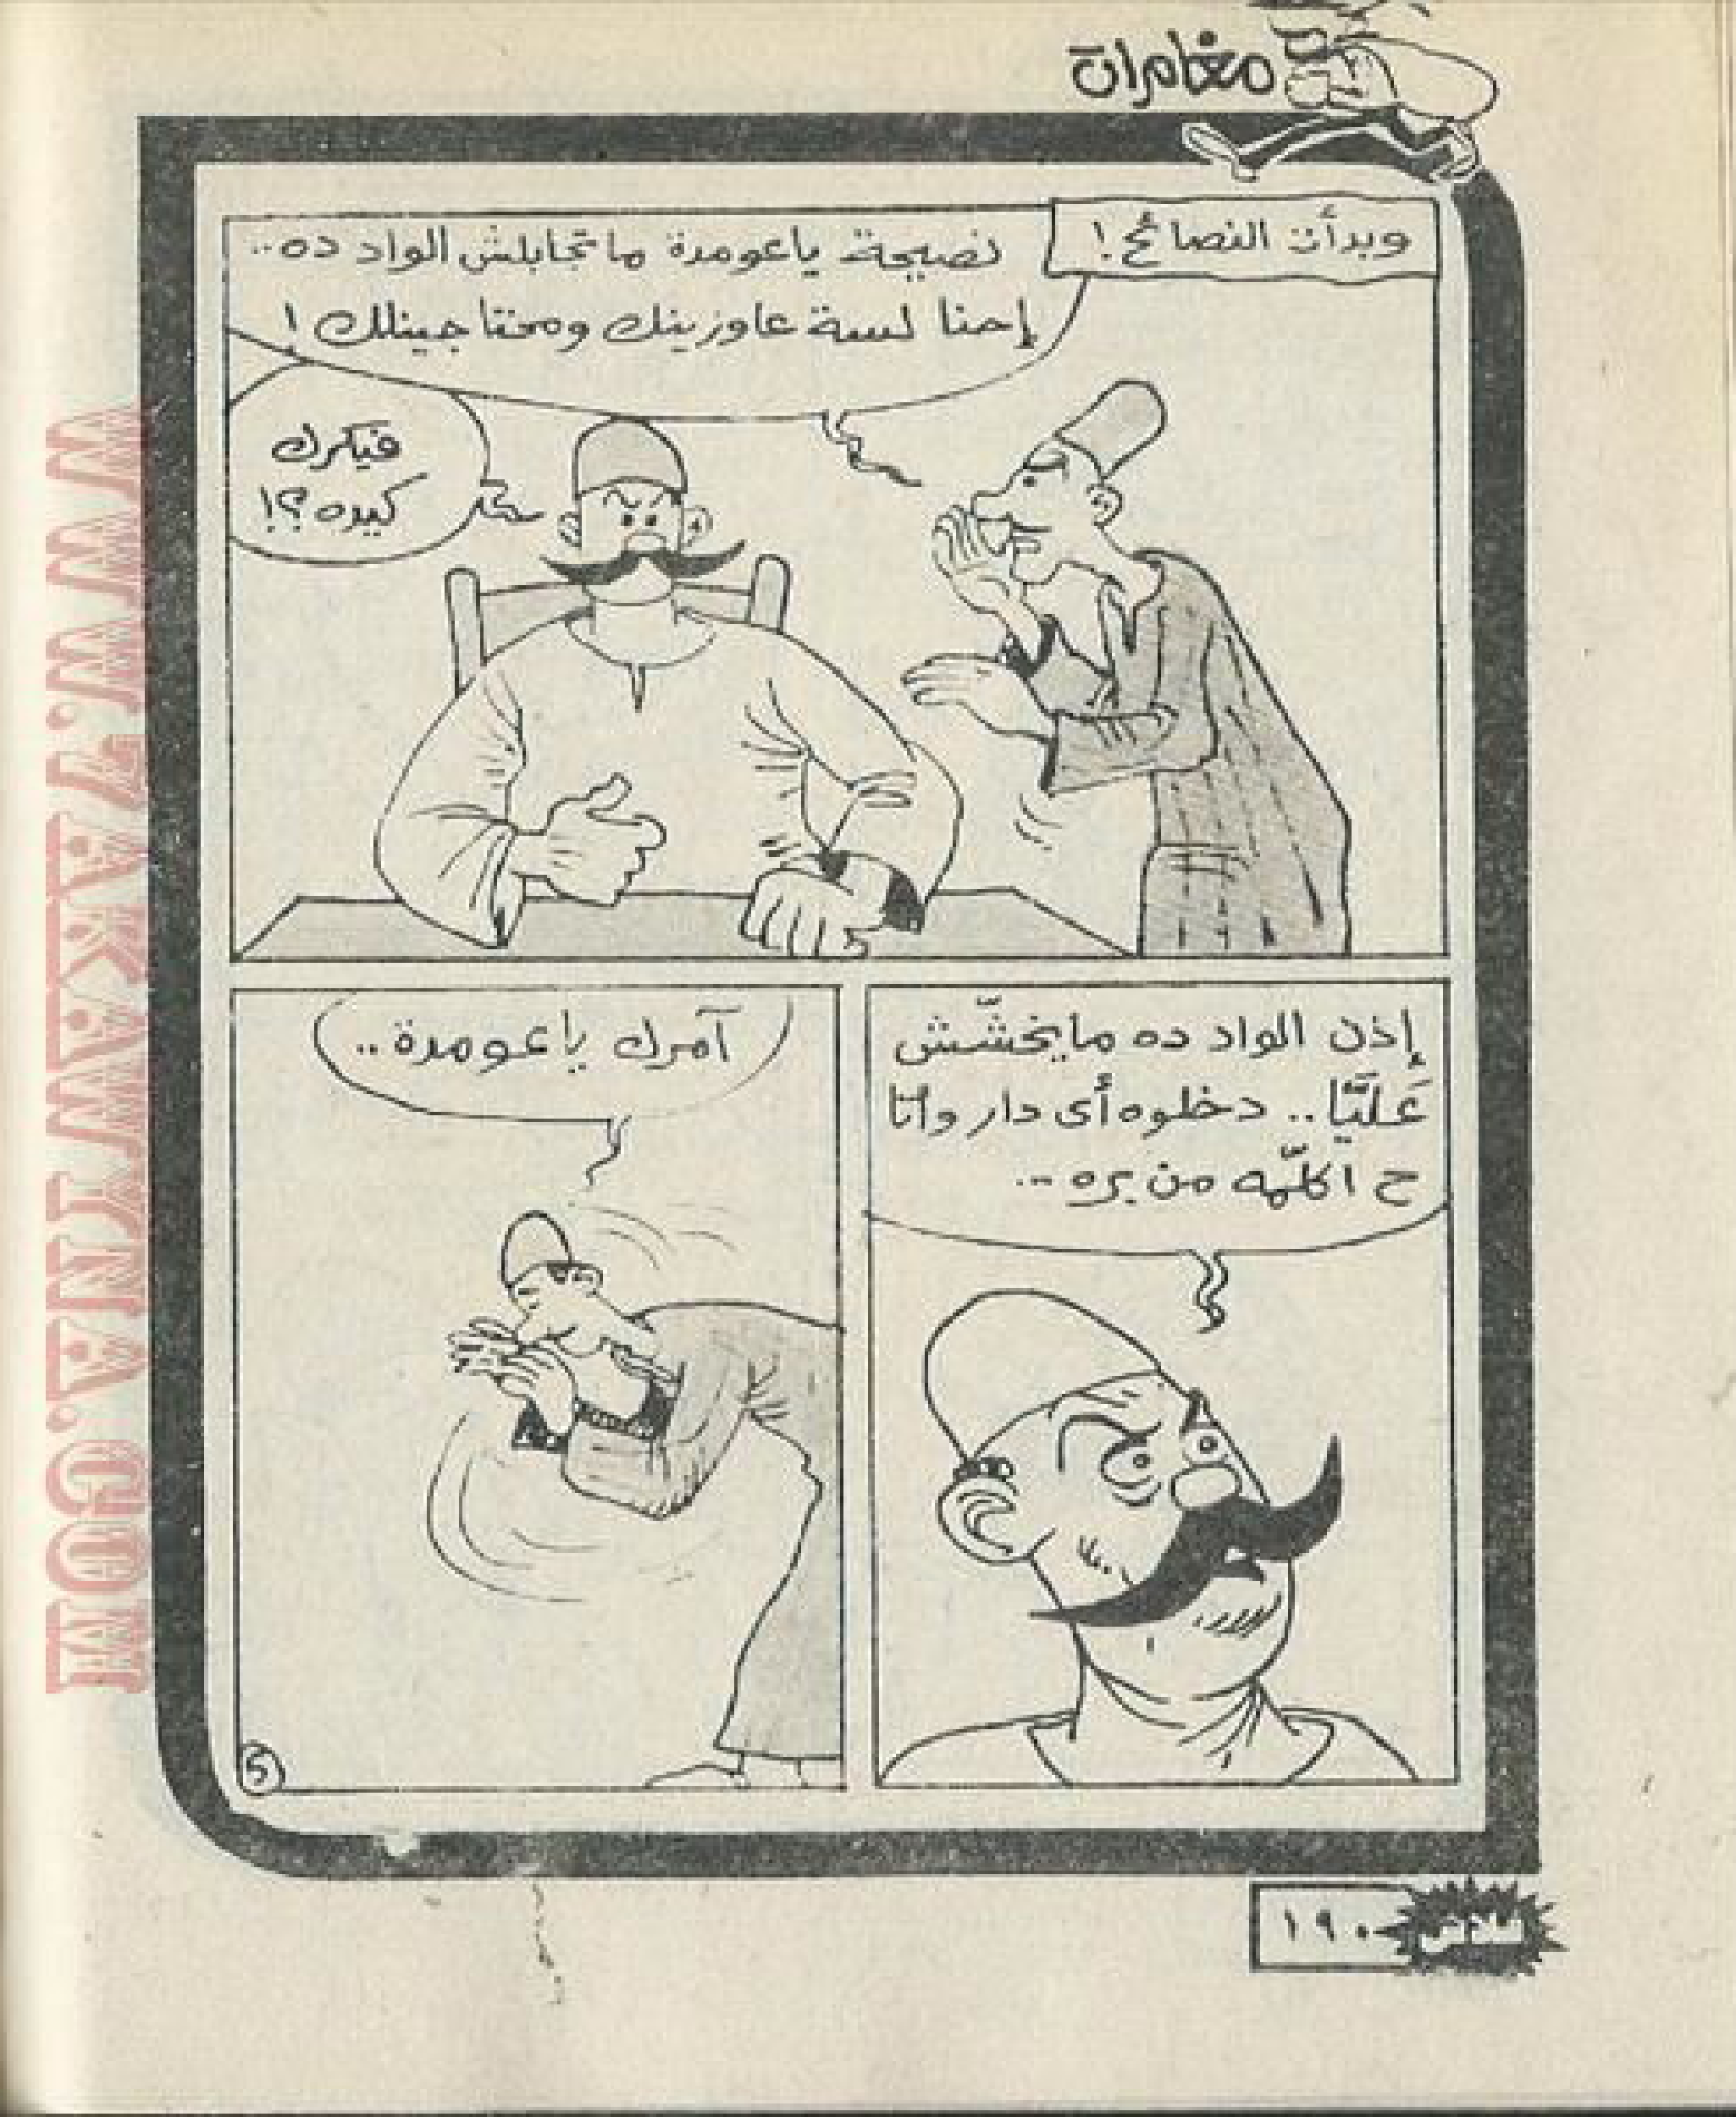 مغامرات
وبدأت النصائح!
نصيحة ياعومدة ماتجابلش الواد ده..
إحنا لسة عاوزينك ومحتاجينلك!
فيكرك
كيده؟!
إذن الواد ده مايخشّش
عَلَيَّا.. دخلوه أى دار وانا
ح اكلّمه من بره ...
آمرك ياعومدة..
5
١٩٠
WWW.TARAWINA.COM